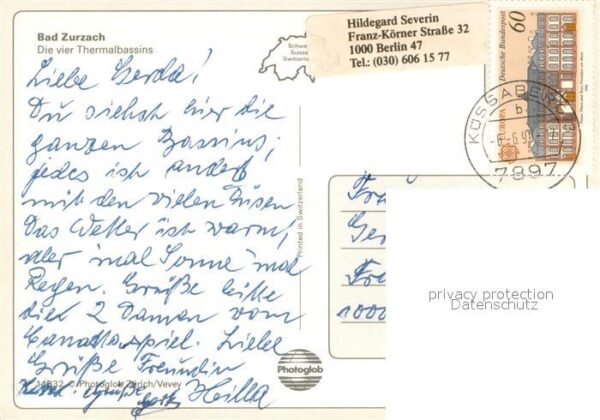 Bad Zurzach
Die vier Thermalbassins
Schwe
Suisse
Switzerla
Hildegard Severin
Franz-Körner Straße 32
1000 Berlin 47
Tel.: (030) 606 15 77
60
Deutsche Bundespost
EUROPA
KÜSSABERG
b
7897
Liebe Gerda!
Du siehst hier die
ganzen Bassins,
jedes ist anders
mit den vielen Düsen
Das Wetter ist warm,
aber mal Sonne mal
Regen. Grüße bitte
die 2 Damen vom
Canastaspiel. Liebe
Grüße Freundin
Hilla
Grüße
Printed in Switzerland
Fra
Ger
Fra
1000
privacy protection
Datenschutz
Photoglob
© Photoglob Zürich/Vevey